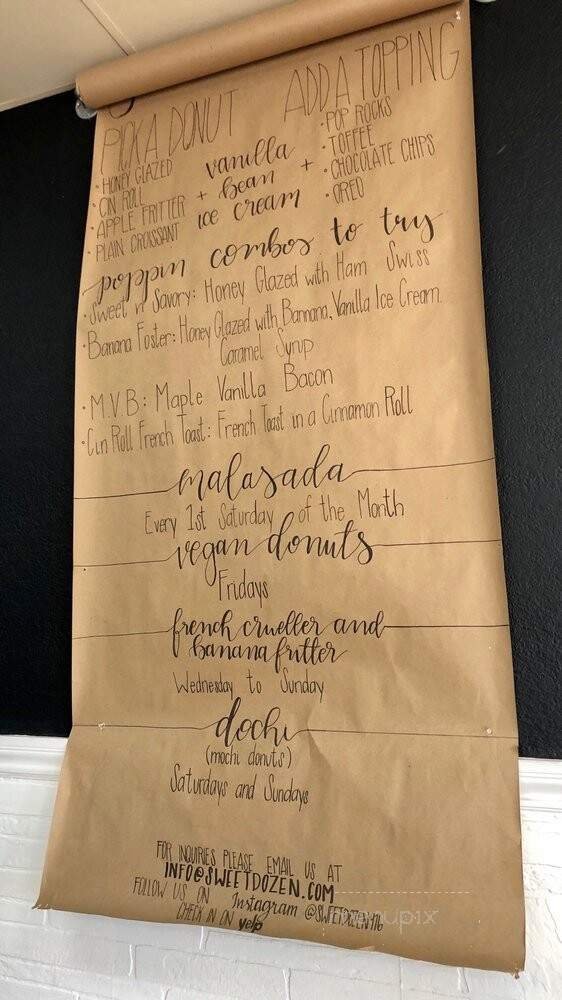 PICK A DONUT
ADD A TOPPING
• HONEY GLAZED
• CIN ROLL
• APPLE FRITTER
• PLAIN CROISSANT
+ vanilla bean ice cream +
• POP ROCKS
• TOFFEE
• CHOCOLATE CHIPS
• OREO
poppin combos to try
• Sweet n' Savory: Honey Glazed with Ham Swiss
• Banana Foster: Honey Glazed with Bannana, Vanilla Ice Cream
Caramel Syrup
• M.V.B: Maple Vanilla Bacon
• Cin Roll French Toast: French Toast in a Cinnamon Roll
malasada
Every 1st Saturday of the Month
vegan donuts
Fridays
french crueller and
banana fritter
Wednesday to Sunday
dochi
(mochi donuts)
Saturdays and Sundays
FOR INQUIRIES PLEASE EMAIL US AT
INFO@SWEETDOZEN.COM
FOLLOW US ON Instagram @SWEETDOZEN916
CHECK IN ON yelp
menupix